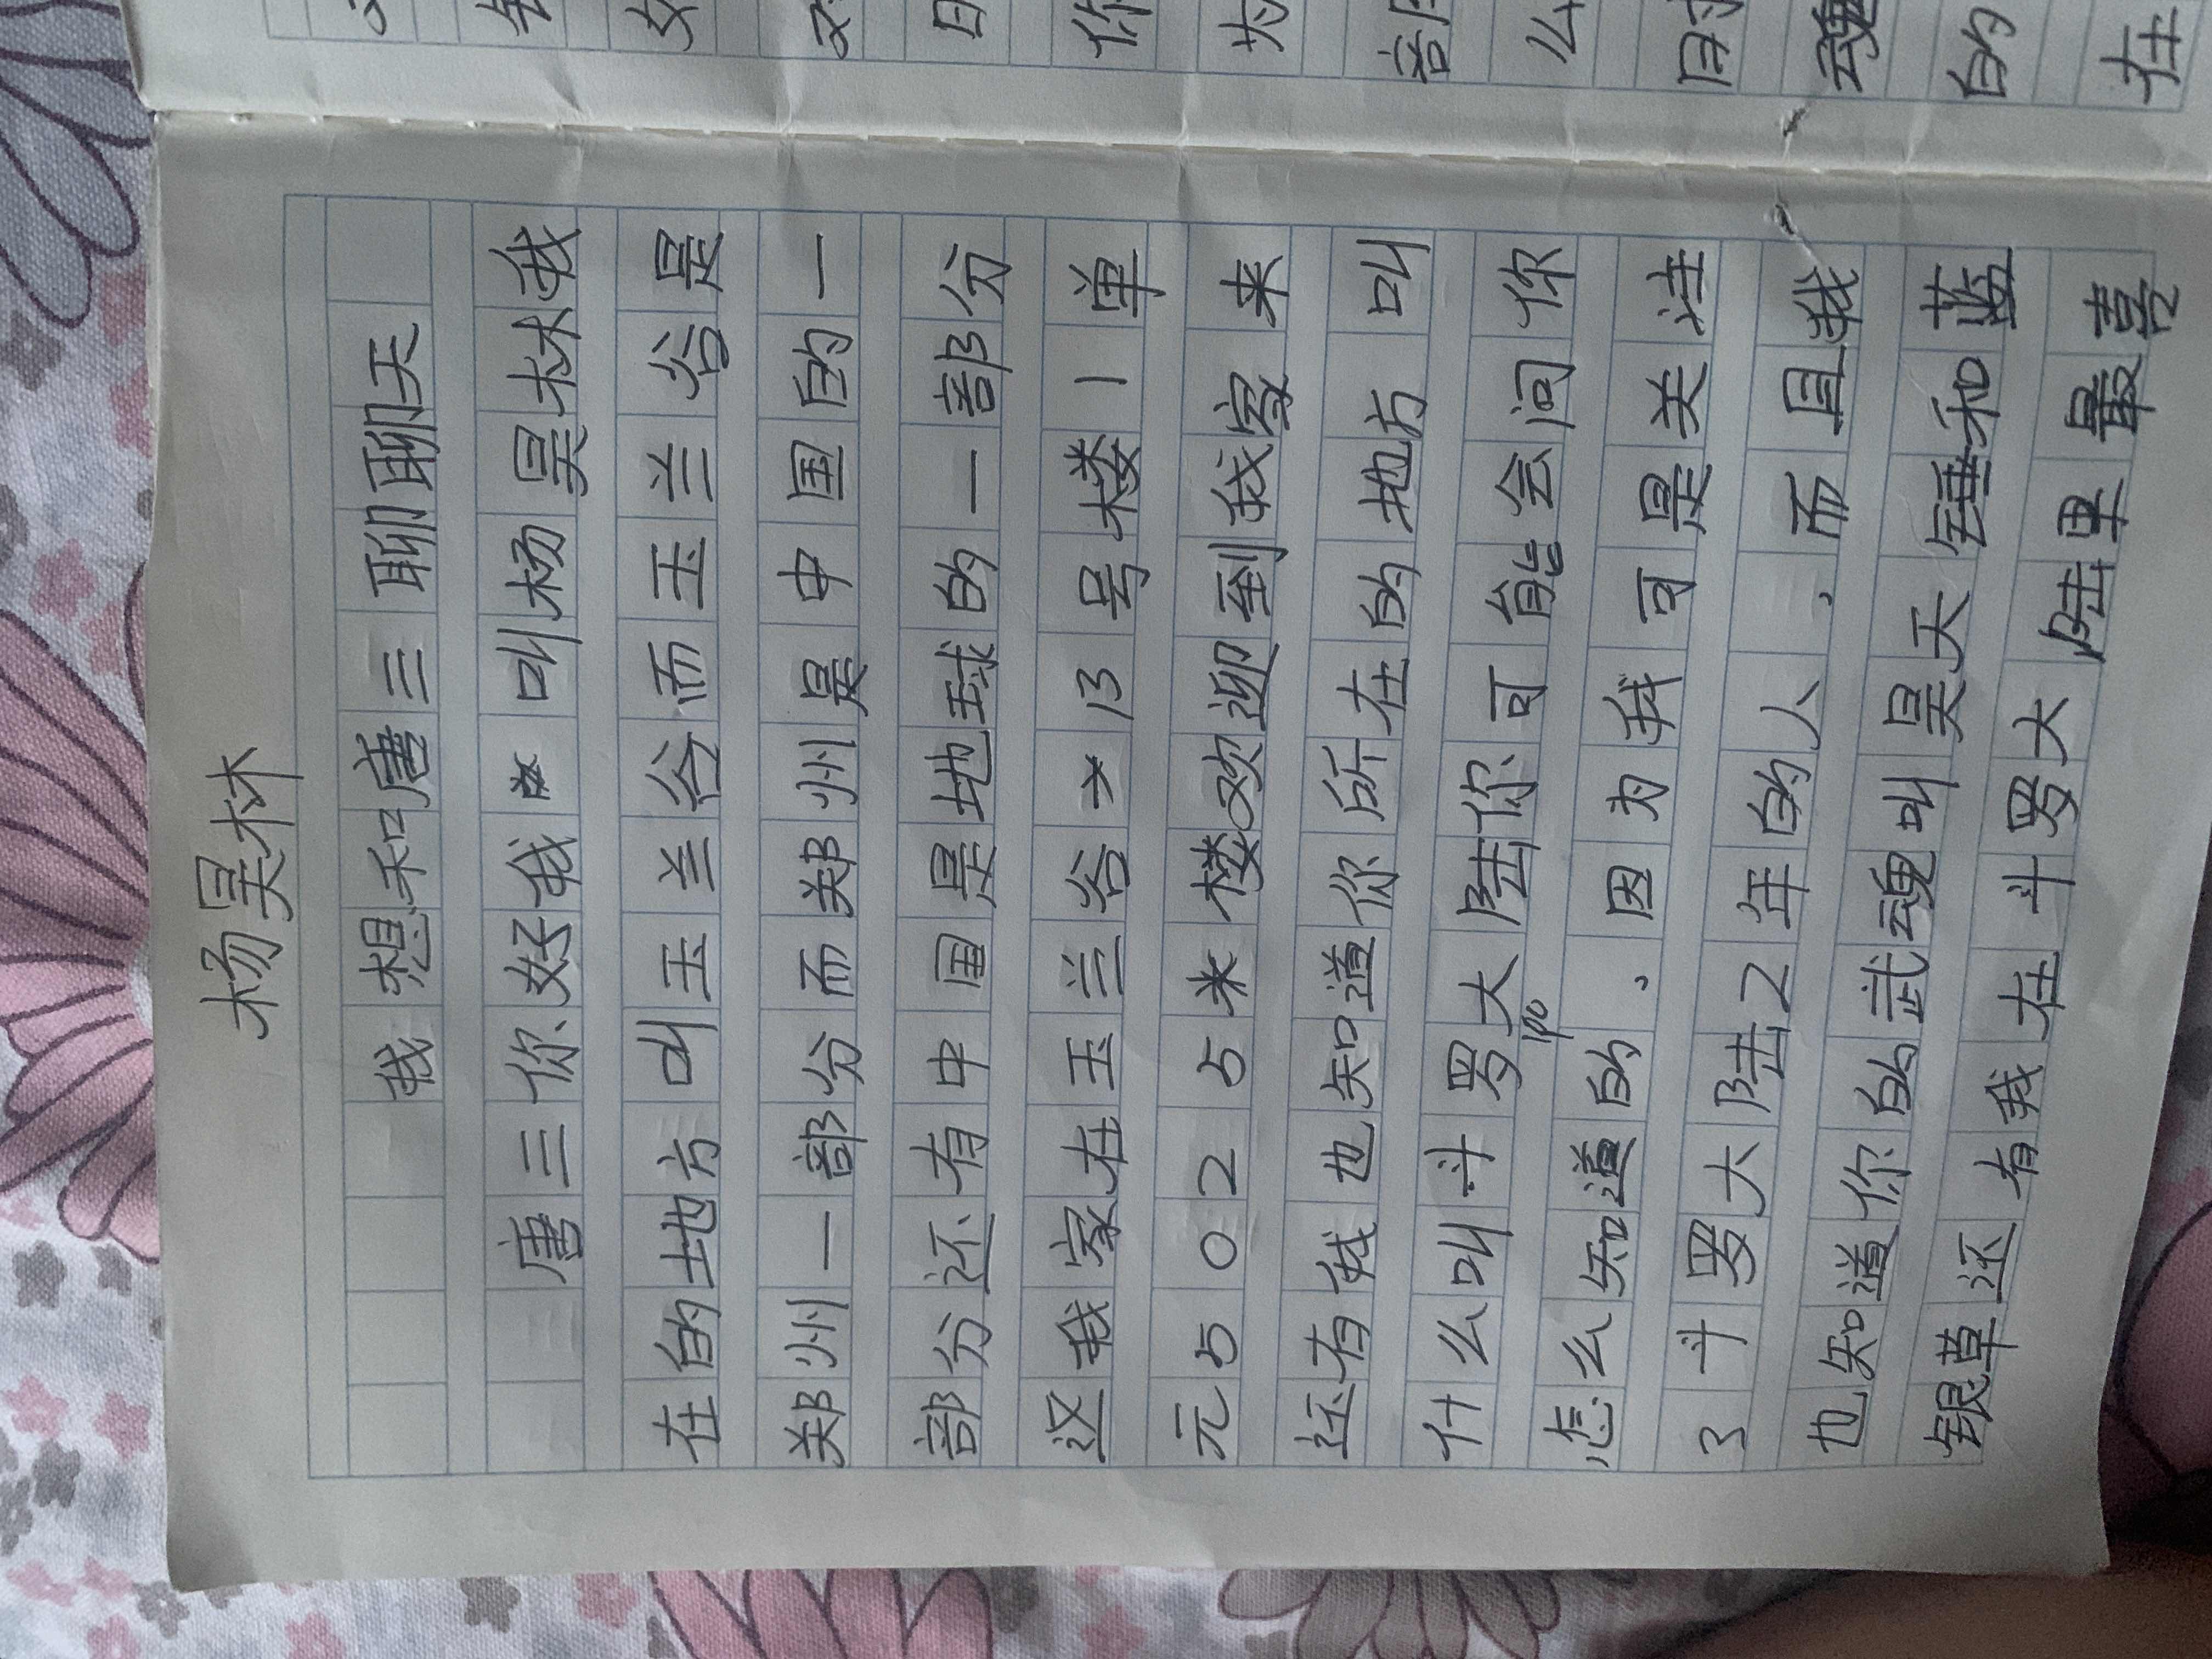 杨昊林
我想和唐三聊聊天
唐三你好我叫杨昊林我
在的地方叫玉兰谷而玉兰谷是
郑州一部分而郑州是中国的一
部分还有中国是地球的一部分
这我家在玉兰谷13号楼1单
元5025楼欢迎到我家来
还有我也知道你所在的地方叫
什么叫斗罗大陆你可能会问你
怎么知道的,因为我可是关注
了斗罗大陆2年的人,而且我
也知道你的武魂叫昊天锤和蓝
银草还有我在斗罗大陆里最喜
你
为
么
时
魂
的
在